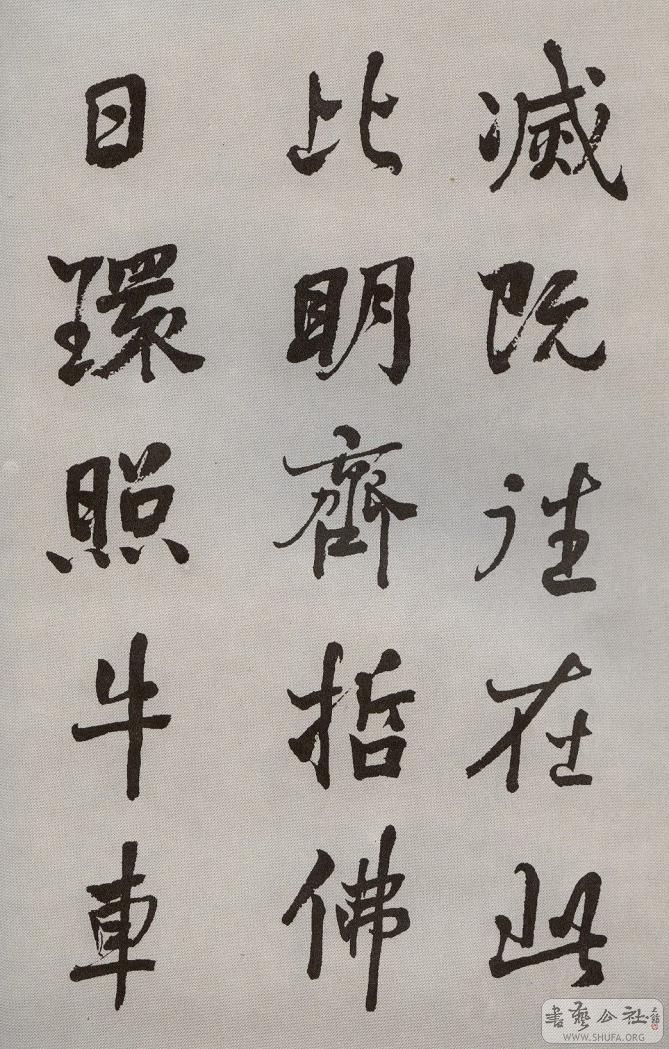 滅既往在此
比明齊哲佛
日環照牛車
書藝公社
WWW.SHUFA.ORG